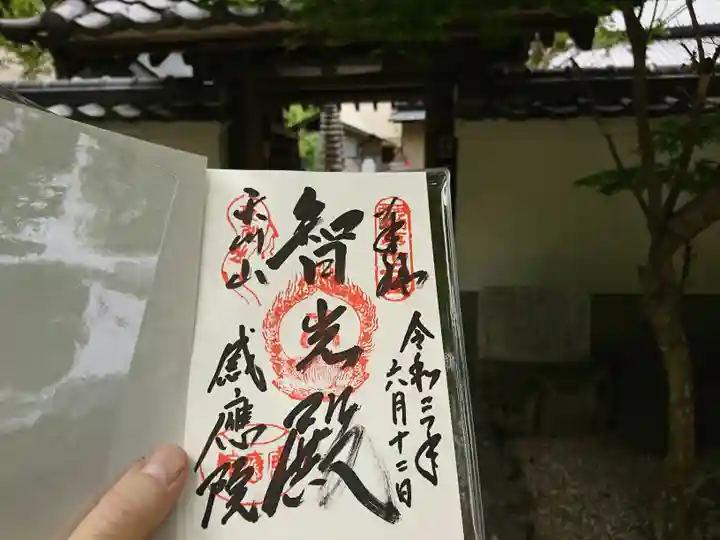 奉拝
令和二年
六月十二日
智光殿
天川山
感應院